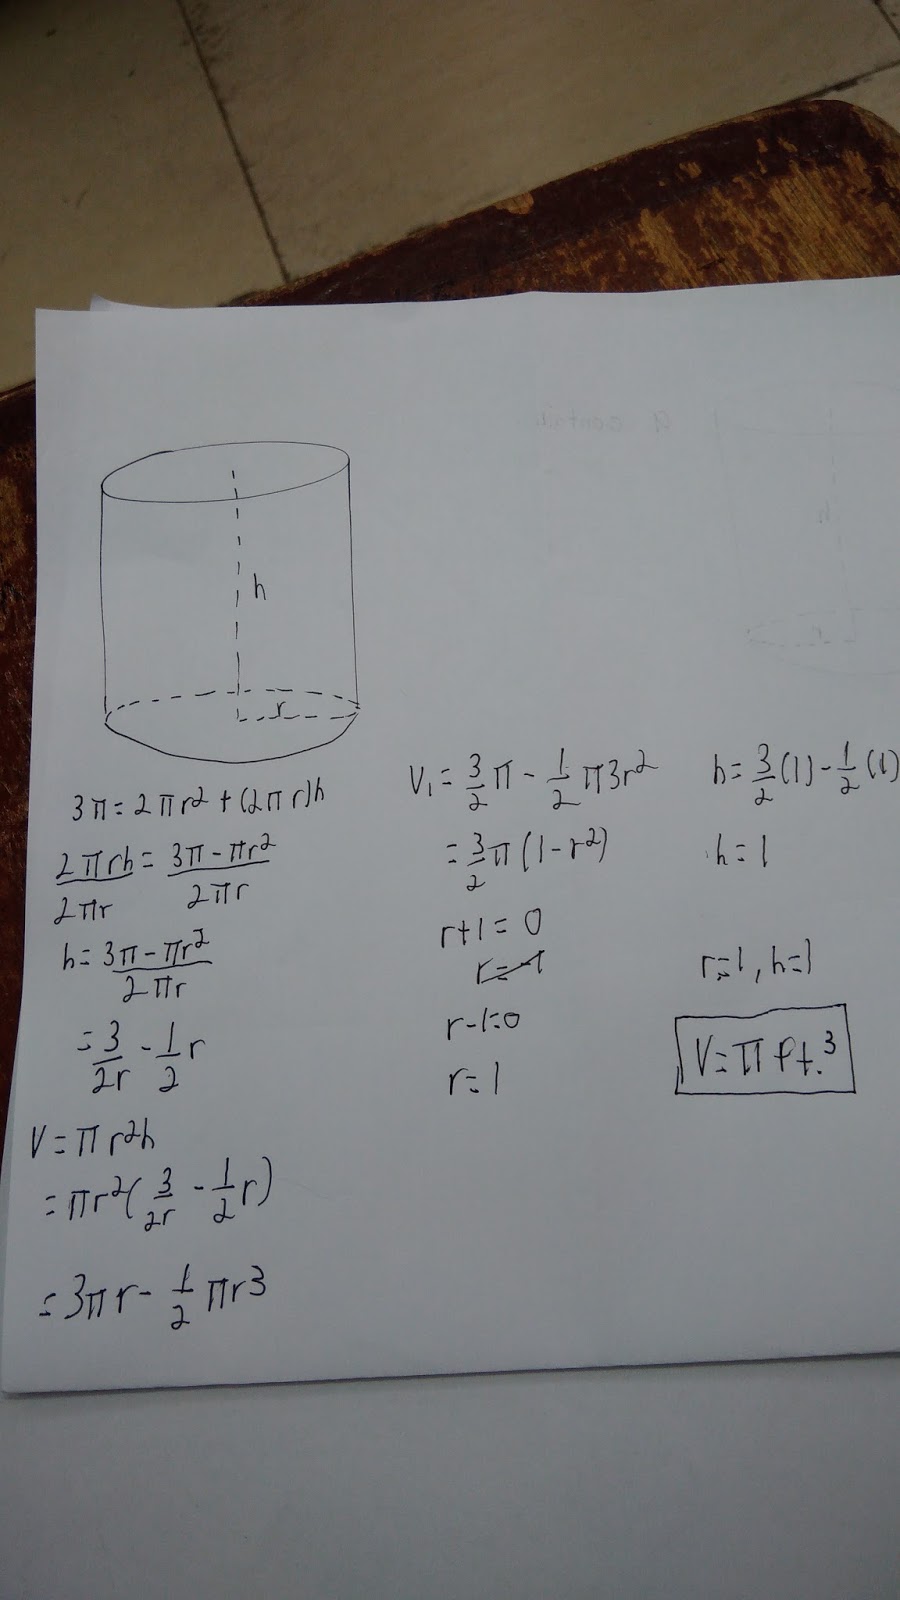 h
r
3π = 2πr² + (2πr)h
2πrh/2πr = 3π - πr²/2πr
h = 3π - πr²/2πr
= 3/2r - 1/2 r
V = πr²h
= πr²(3/2r - 1/2 r)
= 3πr - 1/2 πr3
V₁ = 3/2 π - 1/2 π3r²
= 3/2 π(1 - r²)
r+1 = 0
r = -1
r-1=0
r = 1
h = 3/2 (1) - 1/2 (1)
h = 1
r=1, h=1
V = π ft.³